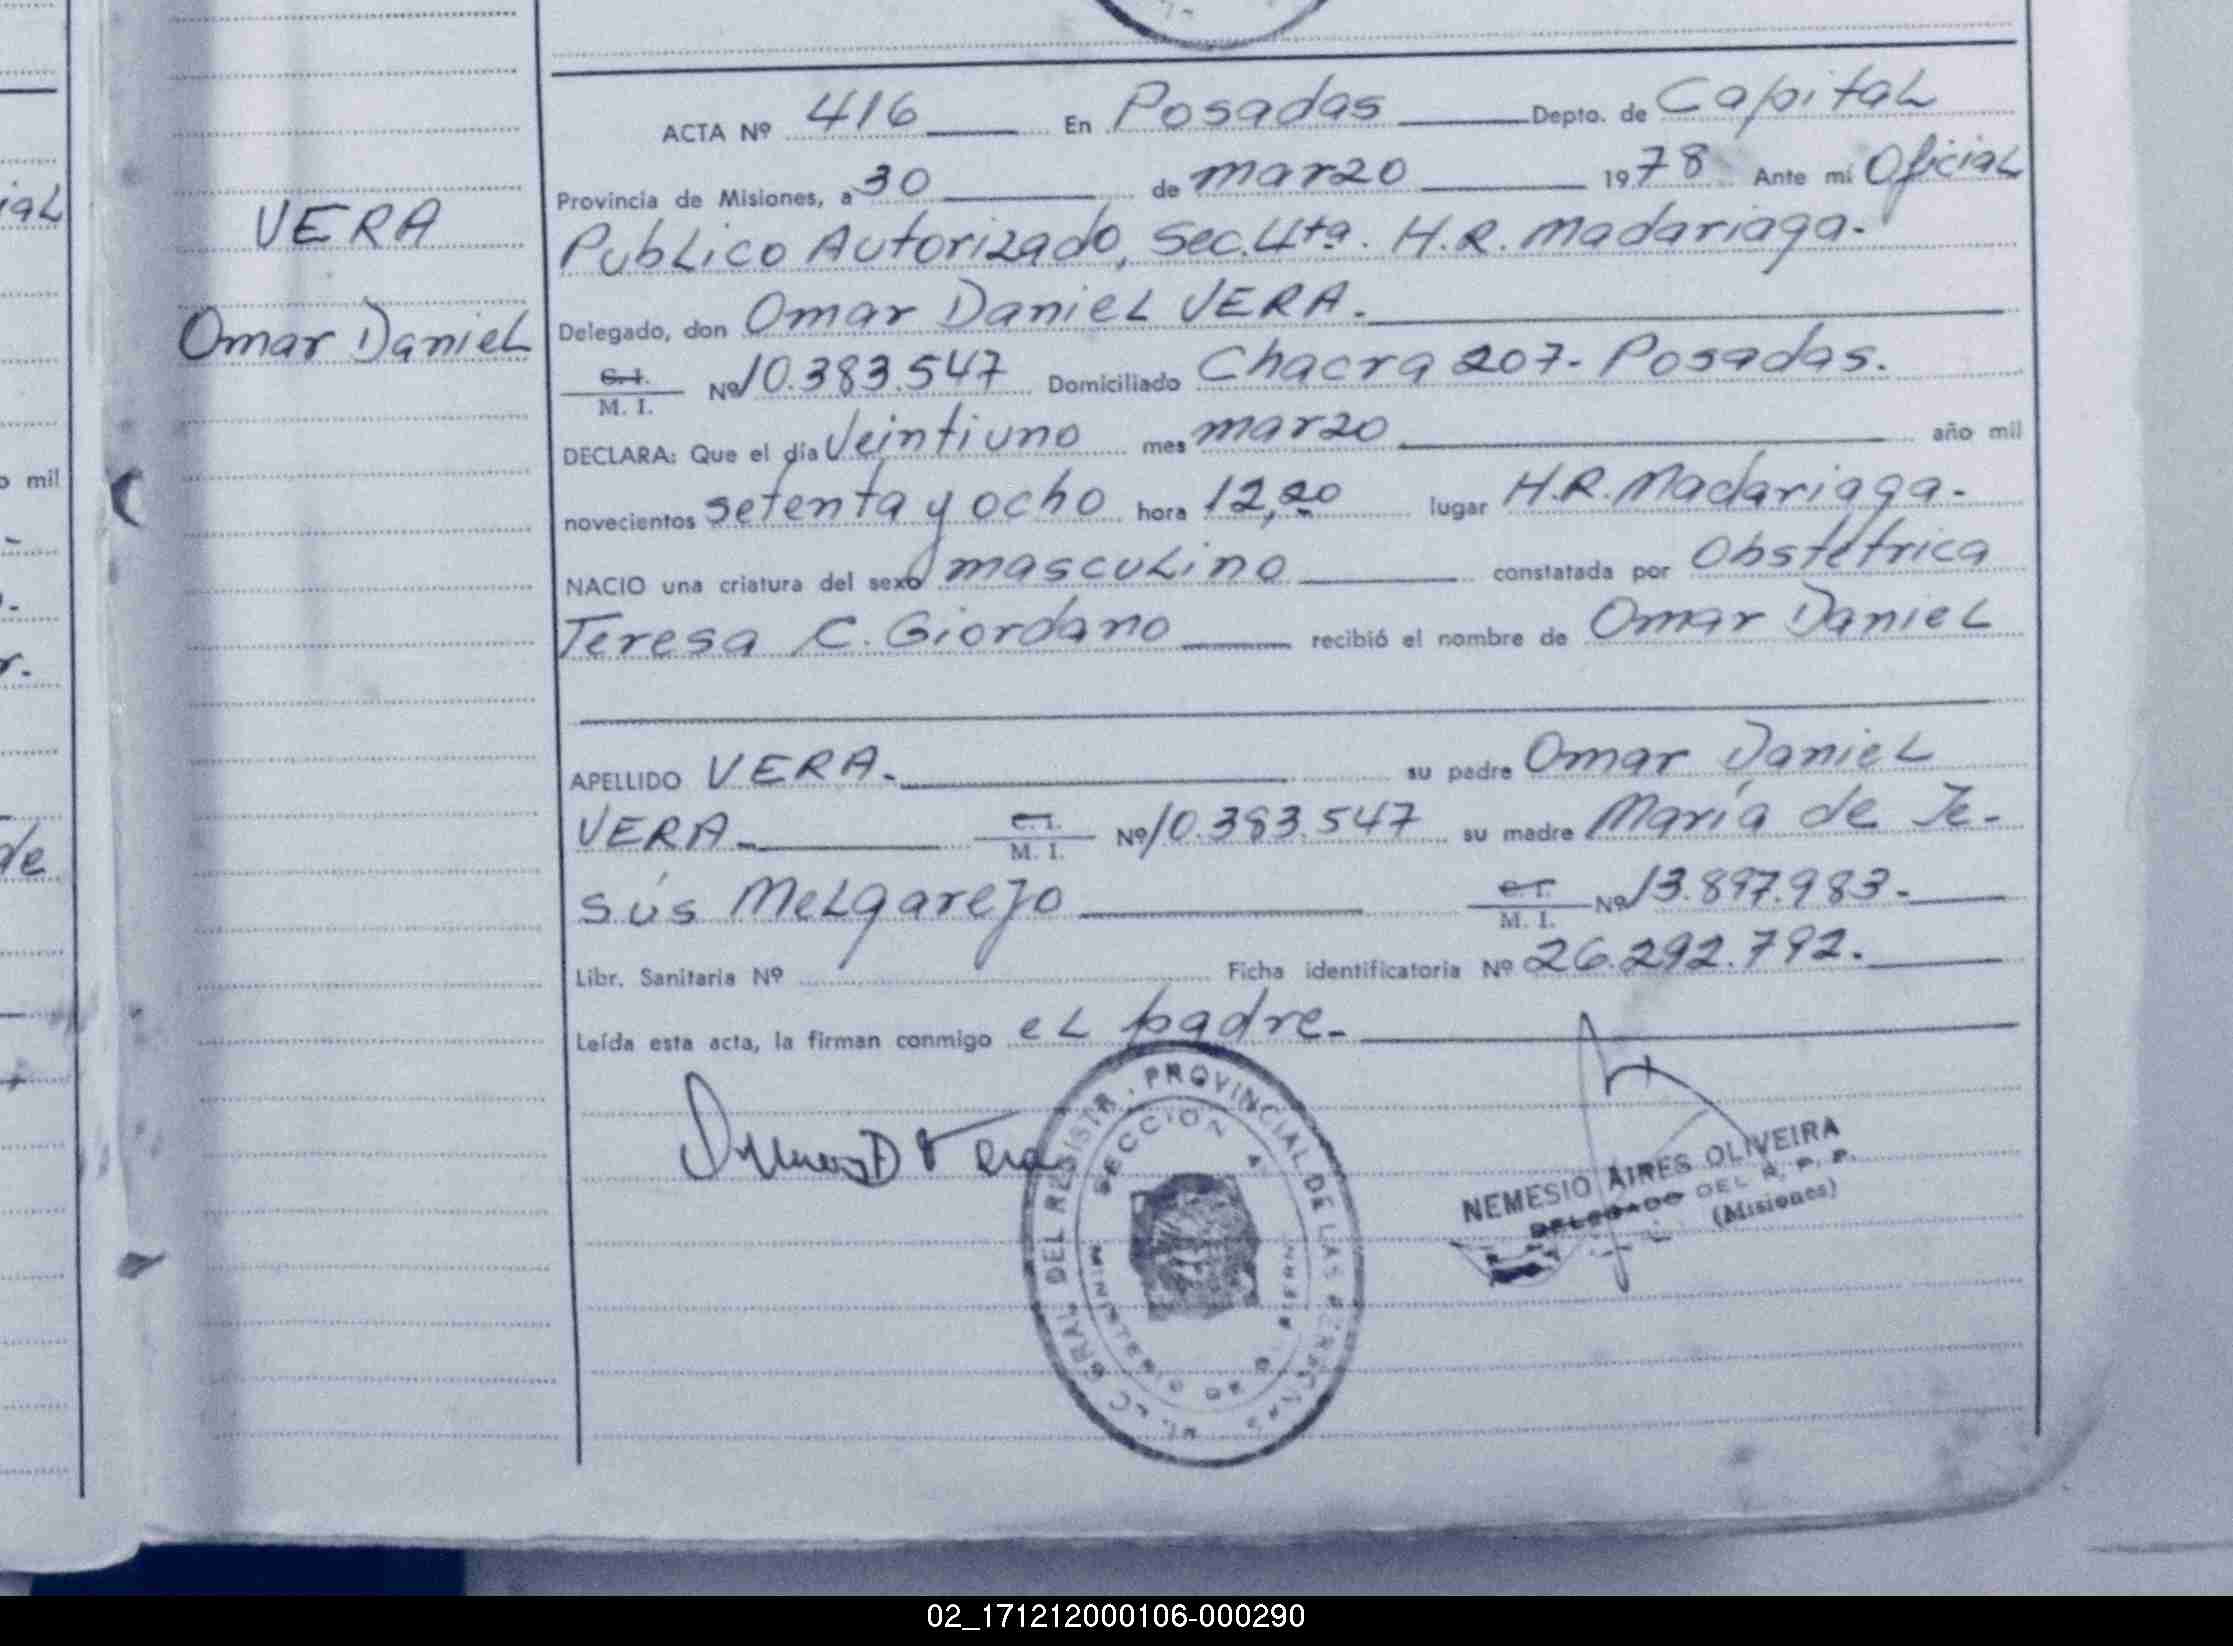 ACTA Nº 416 En Posadas Depto. de Capital
Provincia de Misiones, a 30 de marzo 1978 Ante mi Oficial
Publico Autorizado, Sec. 4ta. H.R. Madariaga.
VERA
Delegado, don Omar Daniel VERA.
Omar Daniel
C.I. M. I. Nº 10.383.547 Domiciliado Chacra 207- Posadas.
DECLARA: Que el día Veintiuno mes marzo año mil
novecientos setenta y ocho hora 12,20 lugar H.R. Madariaga.
NACIO una criatura del sexo masculino constatada por Obstétrica
Teresa C. Giordano recibió el nombre de Omar Daniel
APELLIDO VERA. su padre Omar Daniel
VERA C.I. M. I. Nº 10.383.547 su madre María de Je-
sús Melgarejo C.I. M. I. Nº 13.897.983.
Libr. Sanitaria Nº Ficha identificatoria Nº 26.292.792.
Leída esta acta, la firman conmigo el padre.
Omar D Vera
PROVINCIAL DE LAS PERSONAS
SECCION 4
GRAL. DEL REGISTR.
MINISTERIO DE GOBIERNO
NEMESIO AIRES OLIVEIRA
DELEGADO DEL R. P. P.
(Misiones)
ial
o mil
r.
de
02_171212000106-000290